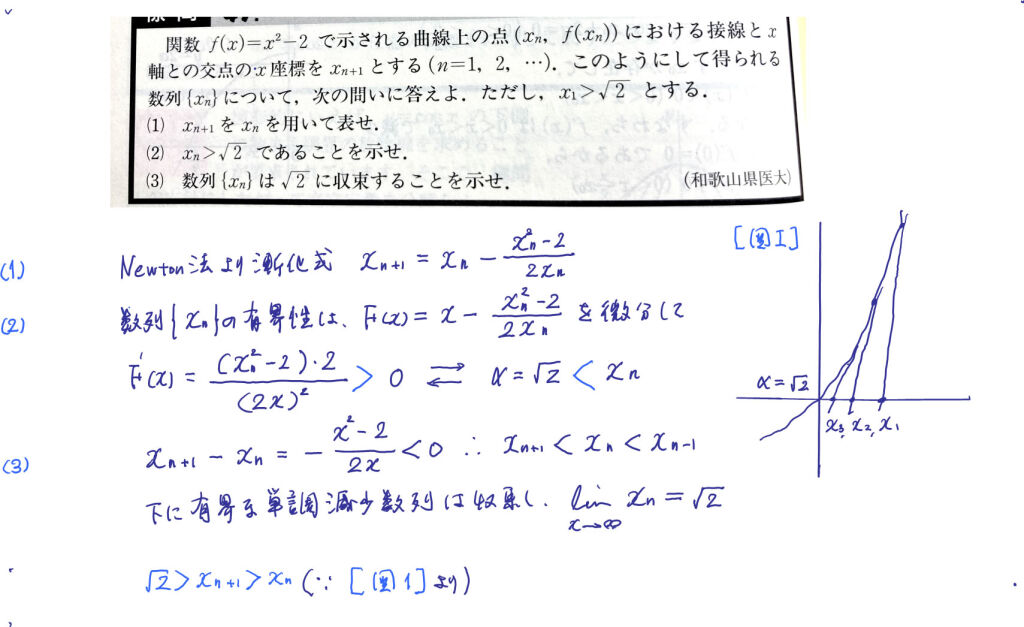 関数 f(x)=x²−2 で示される曲線上の点 (xₙ, f(xₙ)) における接線と x
軸との交点の x 座標を xₙ₊₁ とする (n=1, 2, …). このようにして得られる
数列 {xₙ} について, 次の問いに答えよ. ただし, x₁>√2 とする.
(1) xₙ₊₁ を xₙ を用いて表せ.
(2) xₙ>√2 であることを示せ.
(3) 数列 {xₙ} は √2 に収束することを示せ.
(和歌山県医大)
[図I]
(1) Newton法より漸化式 xₙ₊₁ = xₙ − (xₙ²−2)/(2xₙ)
(2) 数列{xₙ}の有界性は、F(x) = x − (xₙ²−2)/(2xₙ) を微分して
F'(x) = ((xₙ²−2)・2)/(2x)² > 0 ⇄ α=√2 < xₙ
α=√2
x₃, x₂, x₁
(3) xₙ₊₁ − xₙ = − (x²−2)/(2x) < 0 ∴ xₙ₊₁ < xₙ < xₙ₋₁
下に有界な単調減少数列は収束し、 lim x→∞ xₙ = √2
√2 > xₙ₊₁ > xₙ (∵ [図1]より)